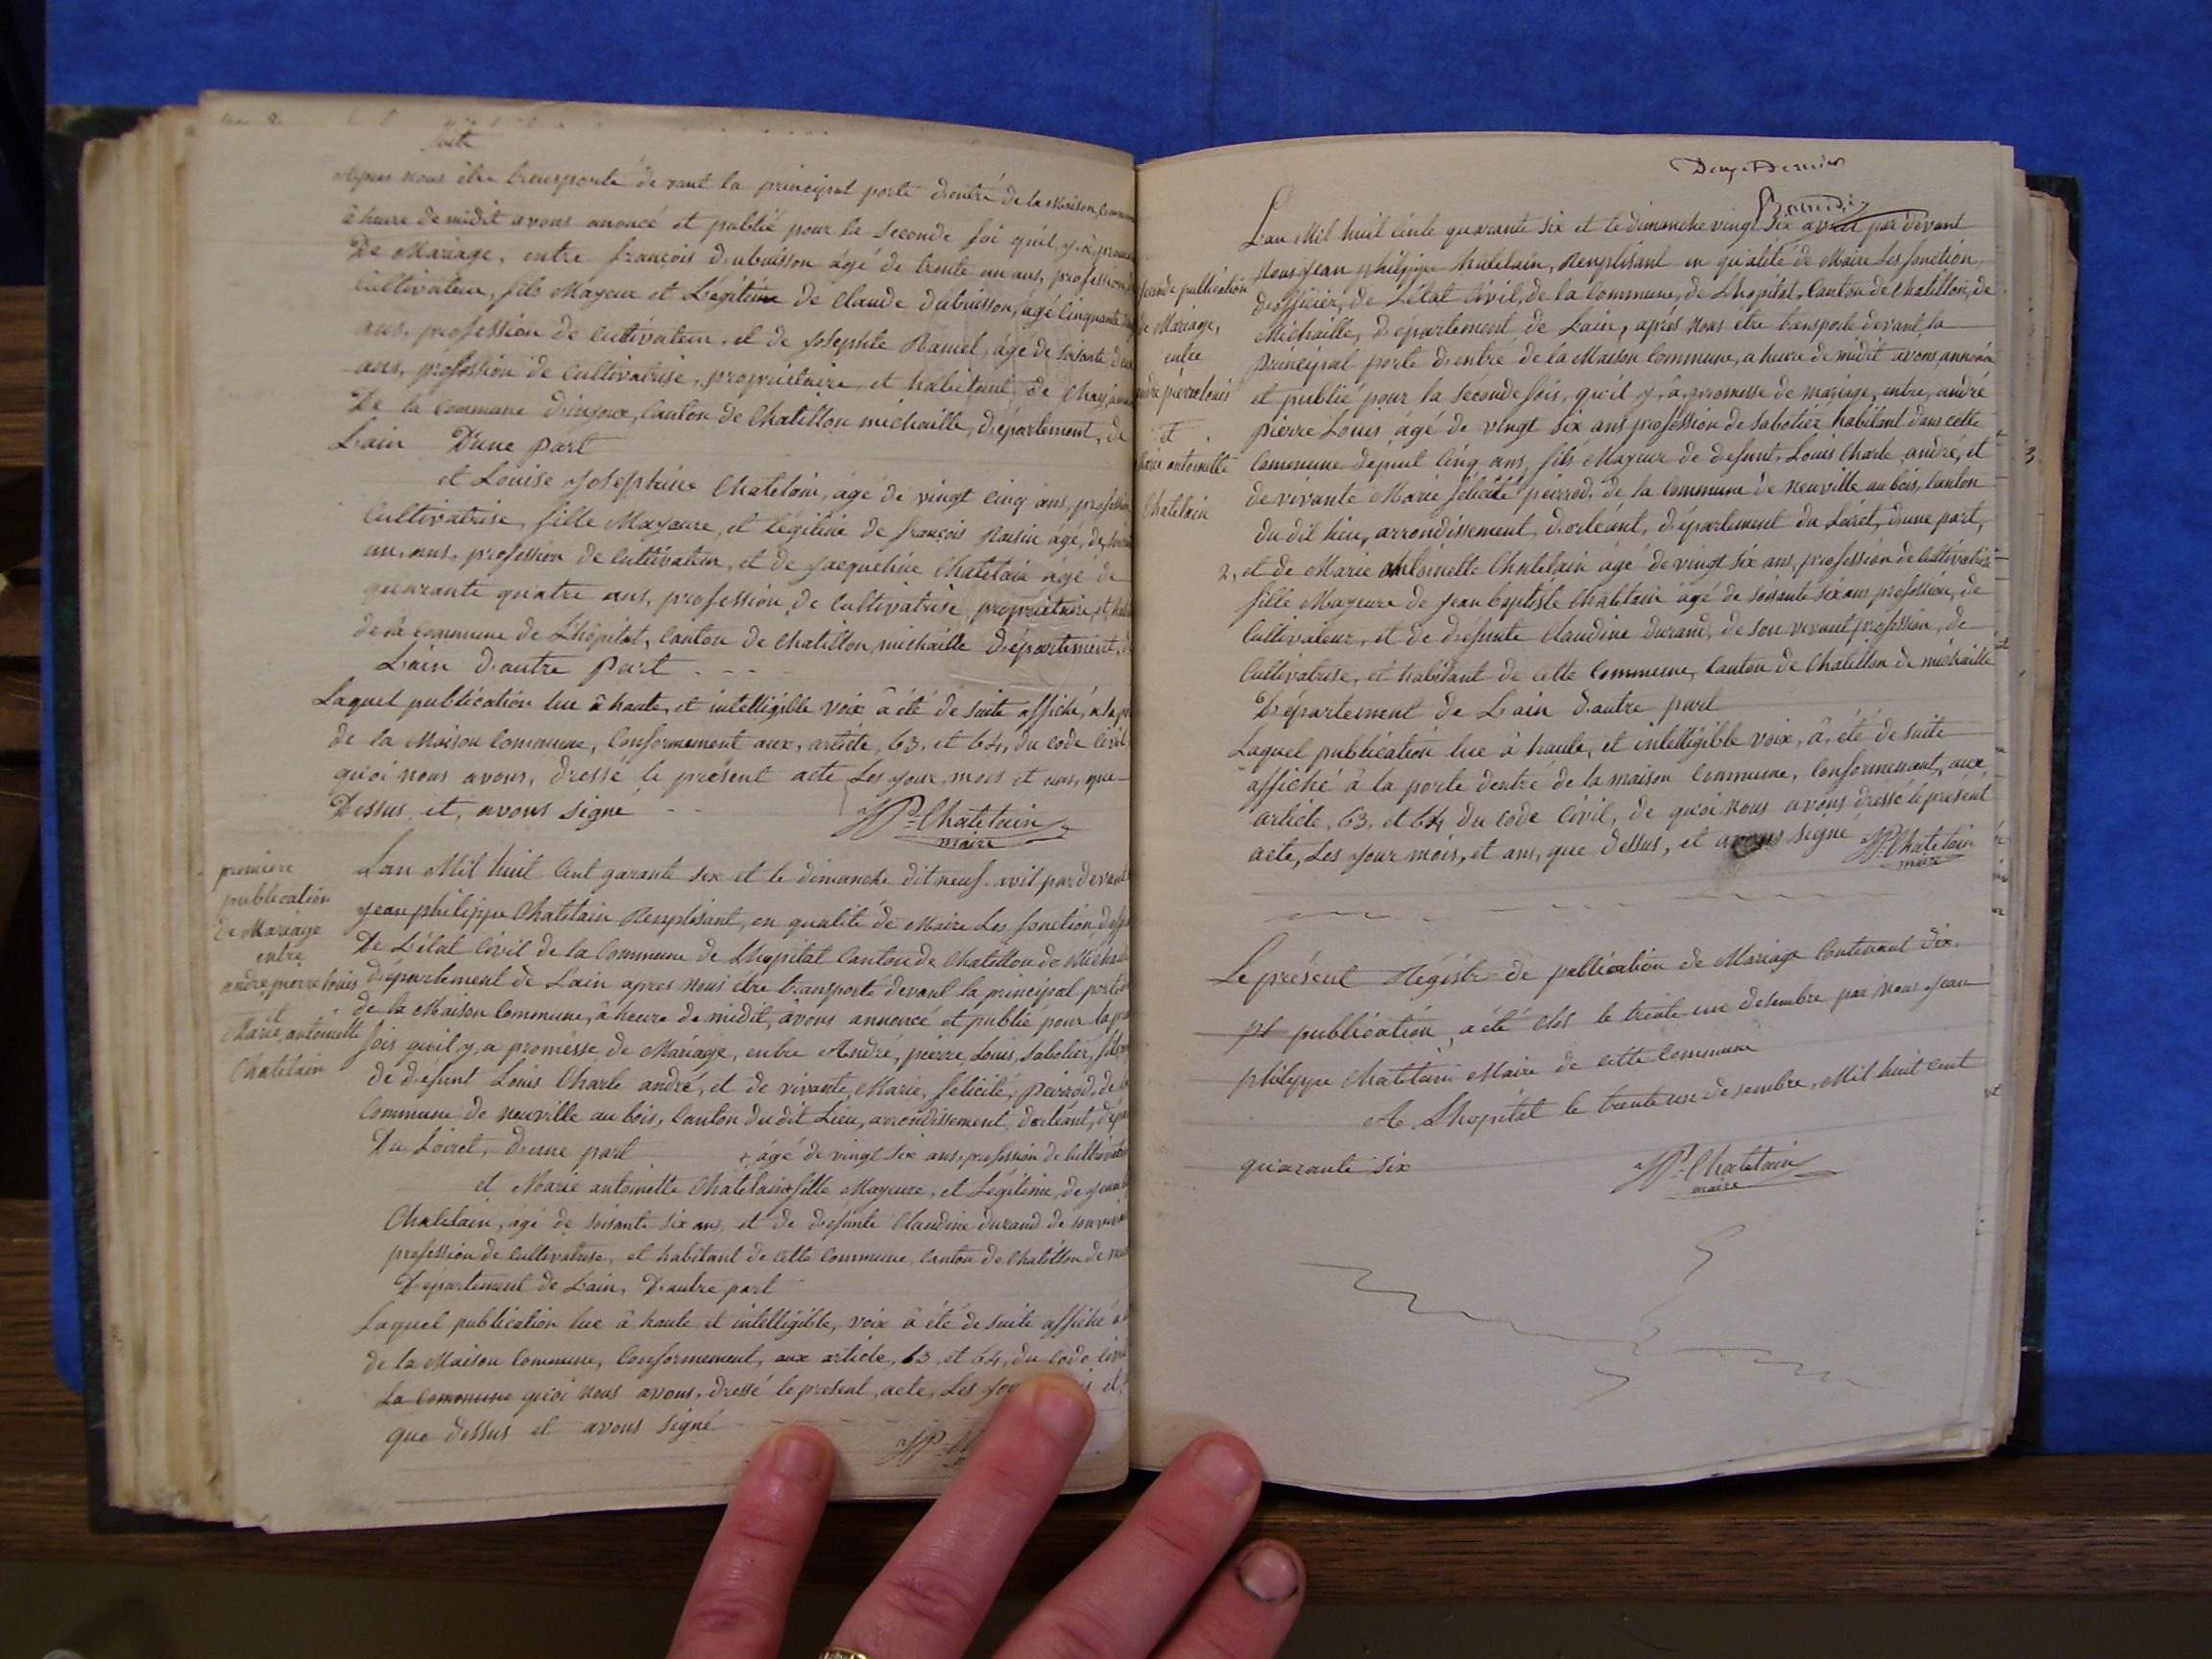 suite
apres nous être transporté devant la principal porte d'entré de la Maison Commune
à heure de midit avons anoncé et publié pour la seconde foi quil y à
De Mariage, entre françois dubuisson âgé de trente un ans, profession
Cultivateur, fils Mayeur et Légitime de Claude dubuisson, agé Cinquante
ans, profession de Cultivateur, et de Josephte Ramel, âgé de soisante
ans, profession de Cultivatrise, propriétaire et habitant de
De la Commune d'injoux, Canton de Chatillon michaille, département, de
Lain D'une part
et Louise Josephine Chatelain, âgé de vingt cinq ans, profession
Cultivatrise, fille Mayeure, et légitime de françois Raisin âgé, de
un, ans, profession de Cultivateur, et de Jacqueline Chatelain âgé de
quarante quatre ans, profession, de Cultivatrise, propriétaire, et
de la Commune de Lhôpital, Canton de Chatillon, michaille Département,
Lain d'autre Part - - -
Laquel publication lue à haute, et intelligible voix à été de suite affiché, a la
de la Maison Commune, Conformement aux, article, 63, et 64, du Code Civil
quoi nous avons, dressé le présent acte Les jour, mois et ans, que
Dessus, et, avons signé - -
JP= Chatelain
maire
première
publication
de Mariage
entre
andre, pierre louis
et
Marie, antoinette
Chatelain
Lan Mil huit Cent garante six et le dimanche dit neuf avit par devant
Jean philippe Chatelain Remplisant, en qualité de Maire Les fonction,
De L'état Civil de la Commune de Lhopital Canton de Chatillon de
Département de Lain apres nous être transporté devant la principal porte
de la Maison Commune, à heure de midit, avons annoncé et publié pour la
fois quil, y, a promesse, de Mariage, entre André, pierre Louis, Sabotier,
de defunt Louis Charle andré, et de vivante, Marie, felicité, Peirrod, de
Commune de neuville au bois, Canton du dit Lieu, arrondissement, d'orléant,
Du Loiret, d'une part + âgé de vingt six ans, profession de
et Marie antoinette Chatelain+ fille Mayeure, et Légitime, de
Chatelain, âgé de soisante six ans, et de defunte Claudine durand de son
profession de Cultivatrise, et habitant de cette Commune, Canton de Chatillon de
Département de Lain, D'autre part
Laquel publication lue à haute et intelligible, voix à été de suite affiché
de la Maison Commune, Conformement, aux article, 63, et 64, du Code
la Commune quoi nous avons, dressé le present, acte, Les et
que dessus et avons signé
Dernier
Lan Mil huit Cente quarante six et le dimanche vingt six avril par devant
Nous Jean philippe Chatelain, Remplisant en qualité de Maire Les fonction,
D'officier, de L'état Civil, de la Commune, de Lhopital, Canton de Chatillon, de
Michaille, département de Lain, après nous être transporte devant, la
principal porte d'entré de la Maison Commune, a heure de midit avons, annoncé
et publié pour la seconde fois, quil y, à, promesse de mariage, entre, andré
pierre Louis, âgé de vingt six ans profession de Sabotier habitant dans cette
Commune depuit Cinq ans, fils Mayeur de defunt, Louis Charle andré, et
de vivante Marie félicité peirrod, de la Commune de neuville au bois, Canton
du dit lieu, arrondissement, d'orléant, département du Loiret, d'une part,
2, et de Marie antoinette Chatelain âgé de vingt six ans, profession de Cultivatrise
fille Mayeure de Jean baptiste Chatelain âgé de soisante six ans profession, de
Cultivateur, et de défunte Claudine durand, de son vivant profession, de
Cultivatrise, et habitant de cette Commune, Canton de Chatillon de michaille
Département de Lain d'autre part
Laquel publication lue à haute, et intelligible voix, à, été de suite
affiché à la porte d'entré de la maison Commune, Conformement, aux
article, 63, et 64 du Code Civil, de quoi nous avons dressé le présent
acte, Les jour mois, et ans, que dessus, et avons signé JP=Chatelain
maire
seconde publication
de Mariage,
entre
andre pierre louis
et
Marie antoinette
Chatelain
Le présent Régistre de publication de Mariage Contenant dix.
publication, a été Clos le trente une desembre par nous Jean
philippe Chatelain Maire de cette Commune
A Lhopital le trente une desembre, Mil huit cent
quarante six
JP=Chatelain
maire